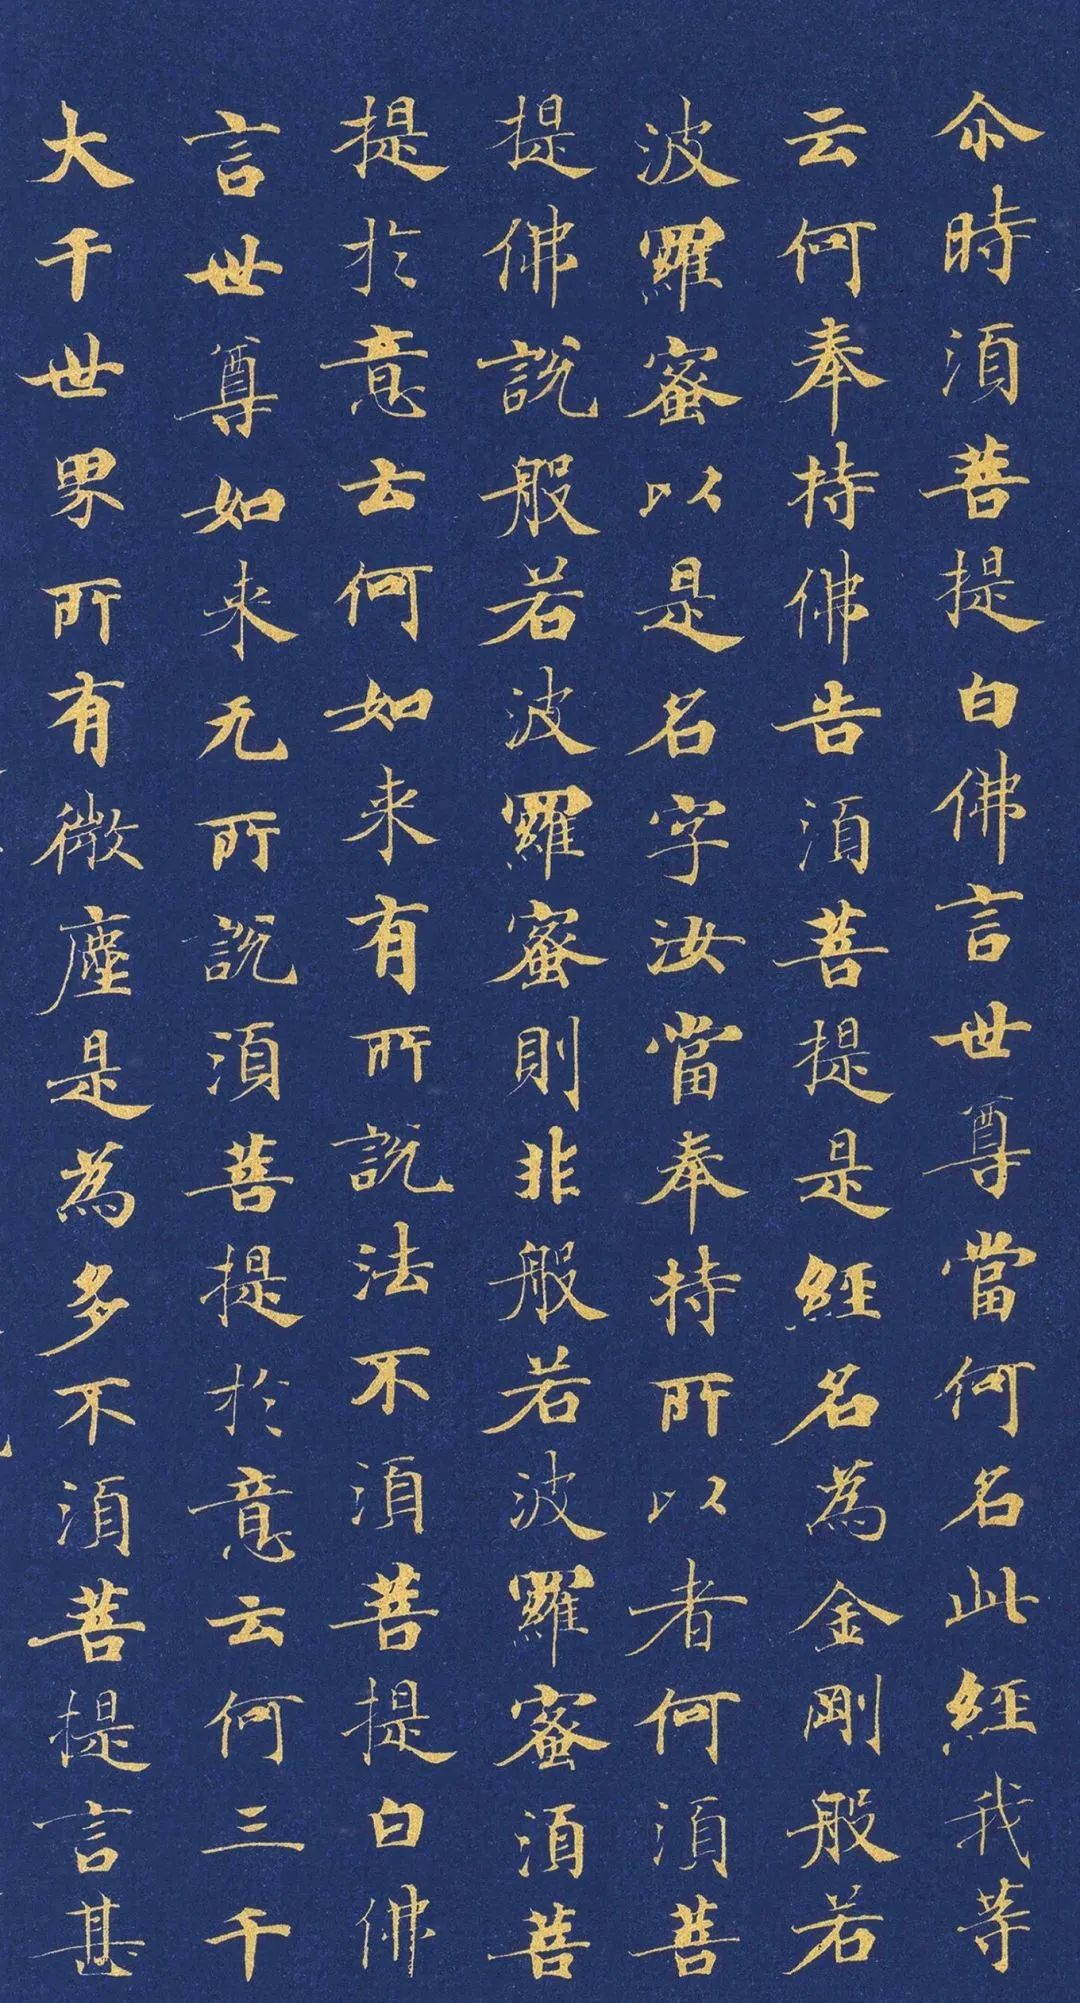 尒時湏菩提白佛言世尊當何名此經我等
云何奉持佛告湏菩提是經名為金剛般若
波羅蜜以是名字汝當奉持所以者何湏菩
提佛說般若波羅蜜則非般若波羅蜜湏菩
提於意云何如来有所說法不湏菩提白佛
言世尊如来无所說湏菩提於意云何三千
大千世界所有微塵是為多不湏菩提言甚